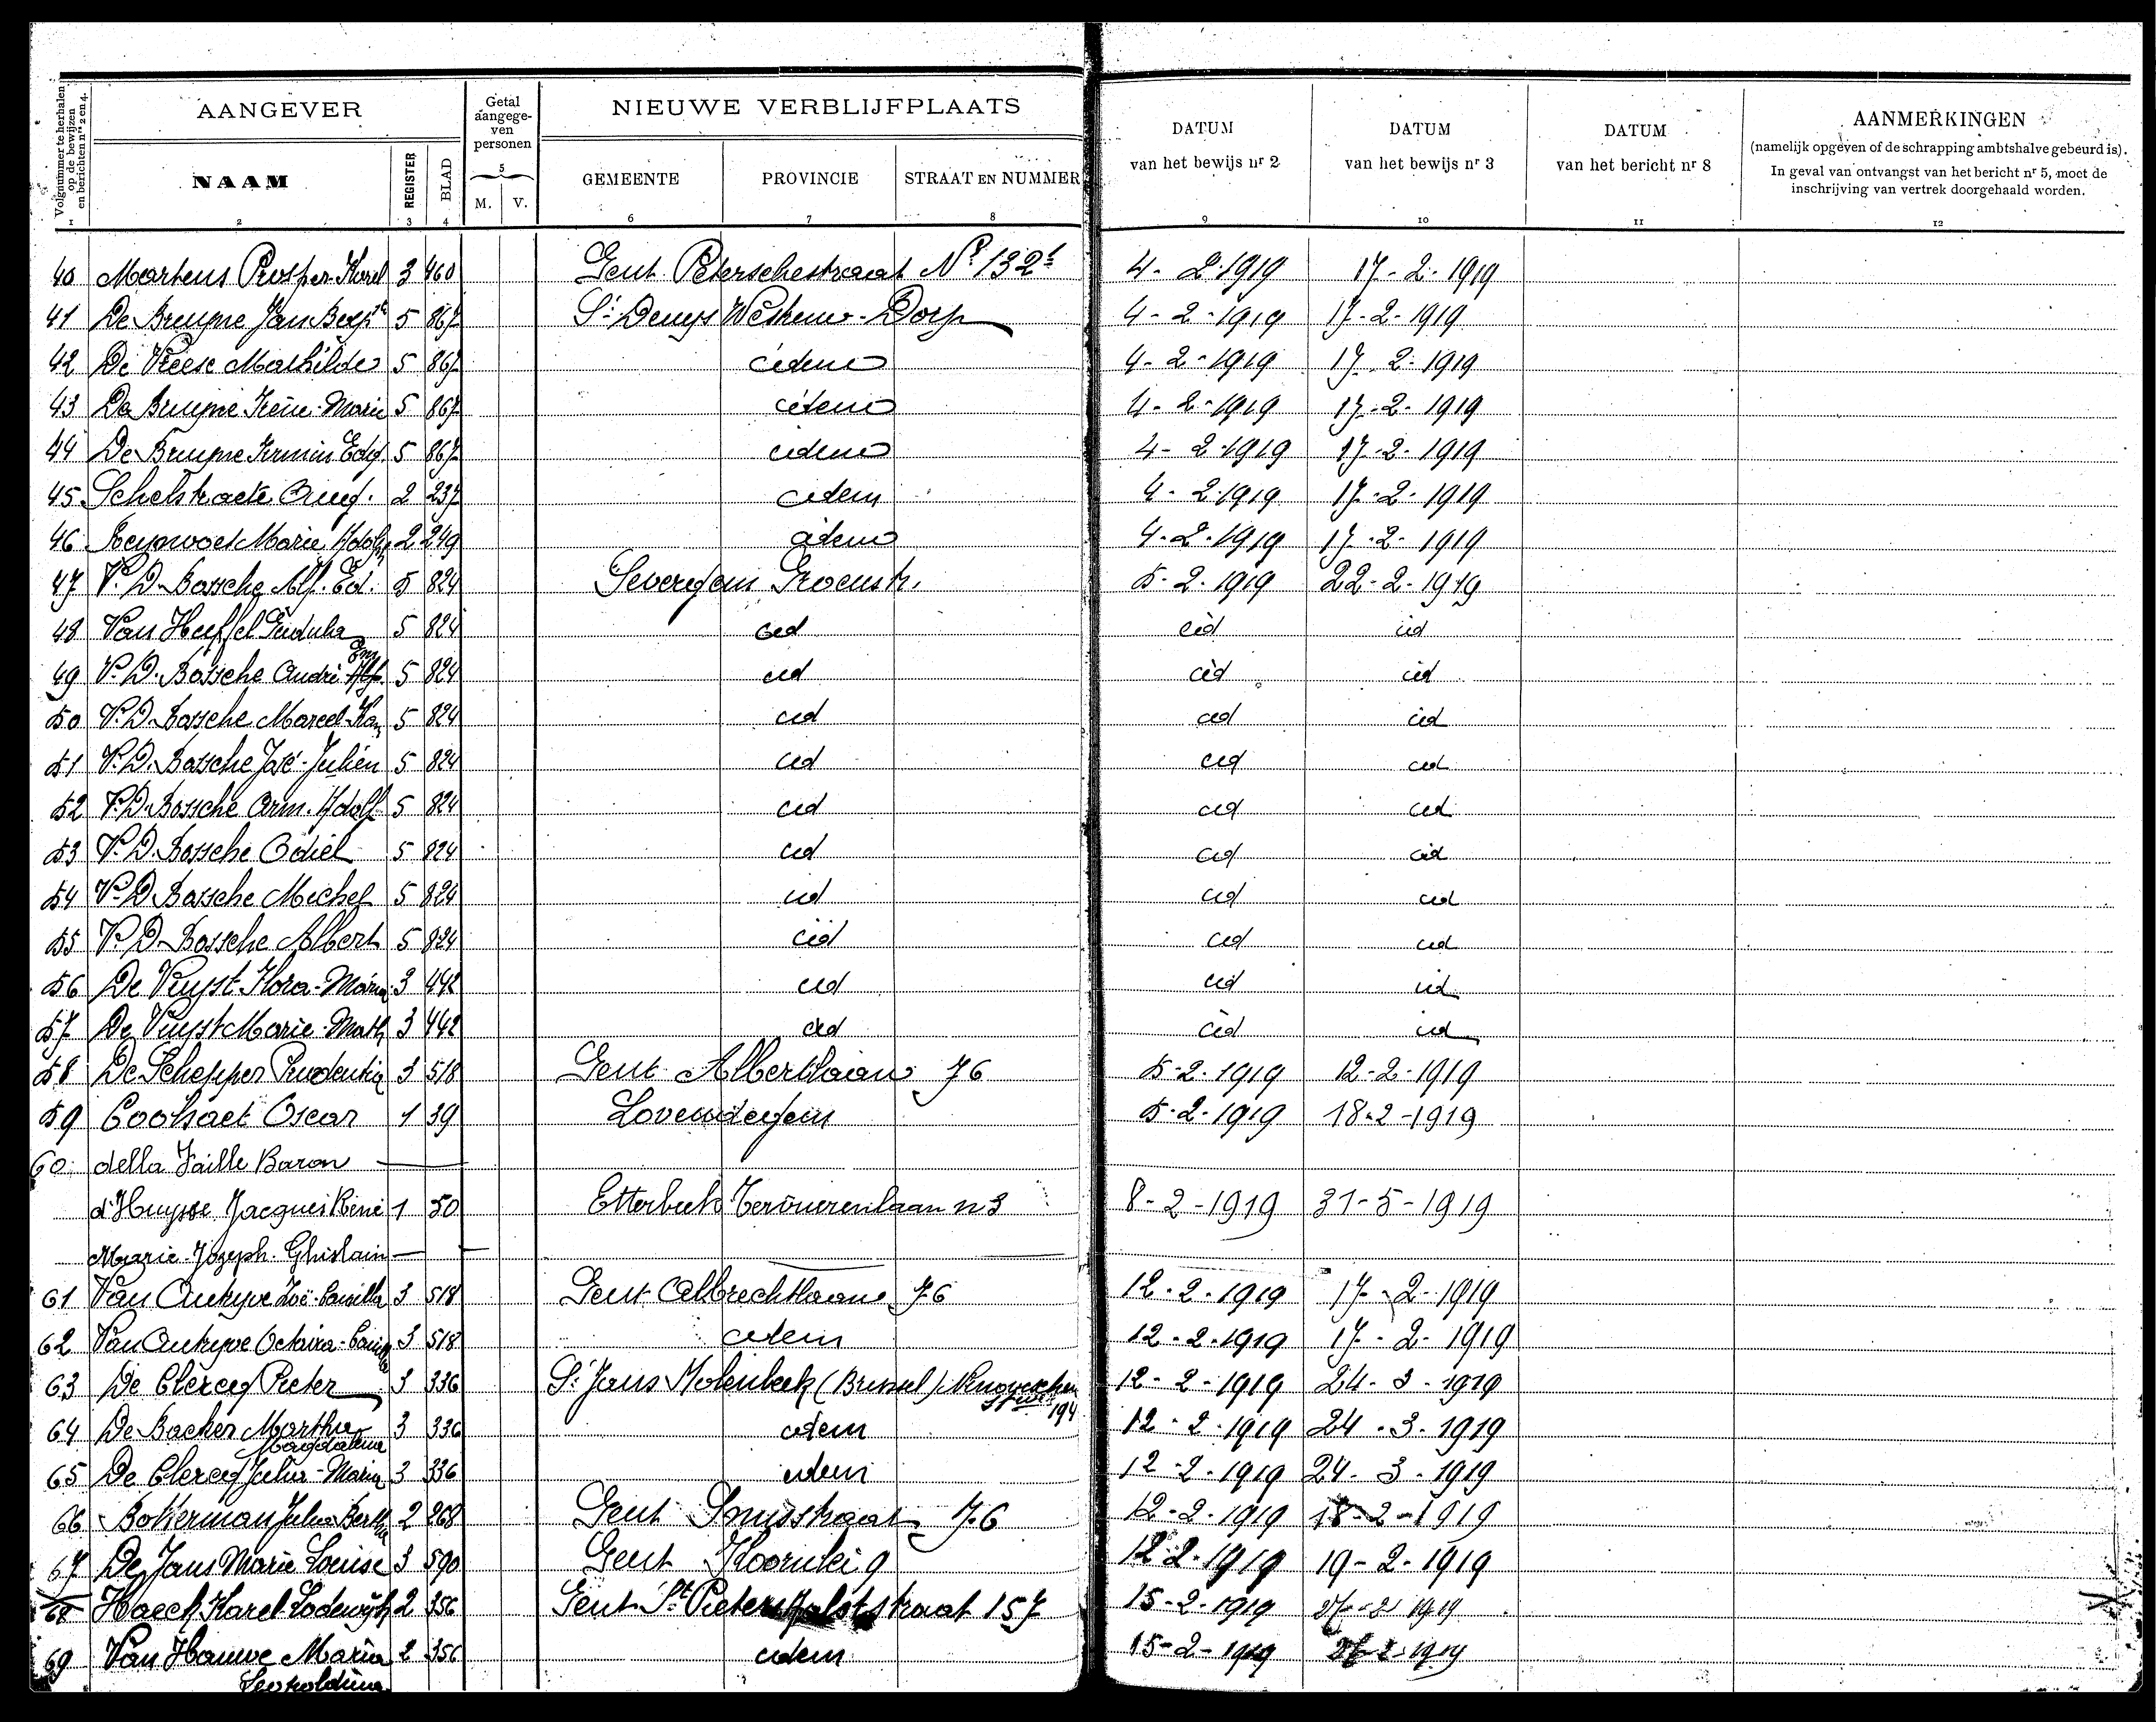 Volgnummer te herhalen op de bewijzen en berichten nrs 2 en 4.
AANGEVER
Getal aangege-ven personen
NIEUWE VERBLIJFPLAATS
DATUM van het bewijs nr 2
DATUM van het bewijs nr 3
DATUM van het bericht nr 8
AANMERKINGEN
(namelijk opgeven of de schrapping ambtshalve gebeurd is).
In geval van ontvangst van het bericht nr 5, moet de
inschrijving van vertrek doorgehaald worden.
NAAM REGISTER BLAD 5 M. V. GEMEENTE PROVINCIE STRAAT EN NUMMER
1 2 3 4 6 7 8 9 10 11 12
40 Martens Prosper-Karel 3 460 Gent Peterschestraat Nr 132 4-2-1919 17-2-1919
41 De Bruyne Jan Bapte 5 867 St Denys Westrem-Dorp 4-2-1919 17-2-1919
42 De Vreese Mathilde 5 867 idem 4-2-1919 17-2-1919
43 De Bruyne Irène-Marie 5 867 idem 4-2-1919 17-2-1919
44 De Bruyne Firmin Edg. 5 867 idem 4-2-1919 17-2-1919
45 Schelstraete Aug. 2 237 idem 4-2-1919 17-2-1919
46 Marie Adolph 2 249 idem 4-2-1919 17-2-1919
47 V. D. Bossche Alf. Ed. 5 824 Severgem Groenstr. 5-2-1919 22-2-1919
48 Van Heffel 5 824 id id id
49 V. D. Bossche André 5 824 id id id
50 V. D. Bossche Marcel 5 824 id id id
51 V. D. Bossche José-Julien 5 824 id id id
52 V. D. Bossche Arm. Adolf 5 824 id id id
53 V. D. Bossche Odiel 5 824 id id id
54 V. D. Bossche Michel 5 824 id id id
55 V. D. Bossche Albert 5 824 id id id
56 De Vuyst Flora-Maria 3 442 id id id
57 De Vuyst Marie-Math 3 442 id id id
58 De Schepper Prudentia 3 518 Gent Albertlaan 76 5-2-1919 12-2-1919
59 Coolsaet Oscar 1 39 Lovendegem 5-2-1919 18-2-1919
60 della Faille Baron
d'Huysse Jacques René 1 50 Etterbeek Tervuerenlaan n 3 8-2-1919 31-5-1919
Marie-Joseph-Ghislain
61 Van Autryve Zoë-Camilla 3 518 Gent Albrechtlaan 76 12-2-1919 17-2-1919
62 Van Autryve Octavia 3 518 idem 12-2-1919 17-2-1919
63 De Clercq Pieter 3 336 St Jans Molenbeek (Brussel) 194 12-2-1919 24-3-1919
64 De Backer Martha Magdalena 3 336 idem 12-2-1919 24-3-1919
65 De Clercq Julia-Maria 3 336 idem 12-2-1919 24-3-1919
66 Bokerman Julia Bertha 2 268 Gent 76 12-2-1919 18-2-1919
67 De Jans Marie Louise 3 590 Gent Koornlei 9 12-2-1919 19-2-1919
68 Haeck Karel Lodewijk 2 356 Gent St straat 157 15-2-1919 27-2-1919
69 Van Hauwe Maria Leopoldina 2 356 idem 15-2-1919 27-2-1919